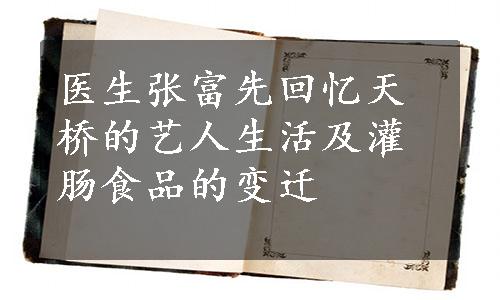 医生张富先回忆天
桥的艺人生活及灌
肠食品的变迁